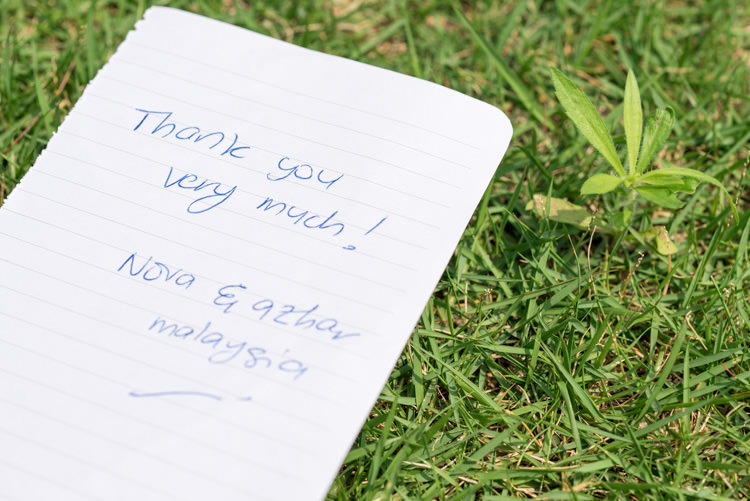 Thank you
very much!
Nova & azhar
malaysia